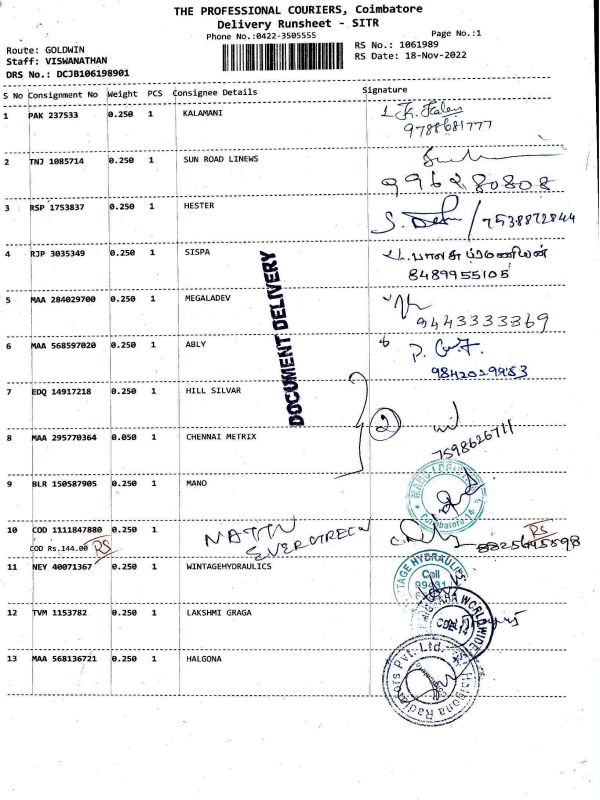 THE PROFESSIONAL COURIERS, Coimbatore
Delivery Runsheet - SITR
Phone No.:0422-3505555
Page No.:1
Route: GOLDWIN
RS No.: 1061989
Staff: VISWANATHAN
RS Date: 18-Nov-2022
DRS No.: DCJB106198901
S No Consignment No Weight PCS Consignee Details Signature
1 PAK 237533 0.250 1 KALAMANI
9788681777
2 TNJ 1085714 0.250 1 SUN ROAD LINEWS
996280808
3 RSP 1753837 0.250 1 HESTER
7538872844
4 RJP 3035349 0.250 1 SISPA
8489955105
5 MAA 284029700 0.250 1 MEGALADEV
9443333369
6 MAA 568597020 0.250 1 ABLY
9842029983
DOCUMENT DELIVERY
7 EDQ 14917218 0.250 1 HILL SILVAR
2
8 MAA 295770364 0.050 1 CHENNAI METRIX
7598626711
9 BLR 150587905 0.250 1 MANO
Coimbatore-14
10 COD 1111847880 0.250 1
COD Rs.144.00 RS
RS
11 NEY 40071367 0.250 1 WINTAGEHYDRAULICS
TAGE HYDRAULICS
12 TVM 1153782 0.250 1 LAKSHMI GRAGA
WORLDWIDE
13 MAA 568136721 0.250 1 HALGONA
Halgona Radiators Pvt. Ltd.